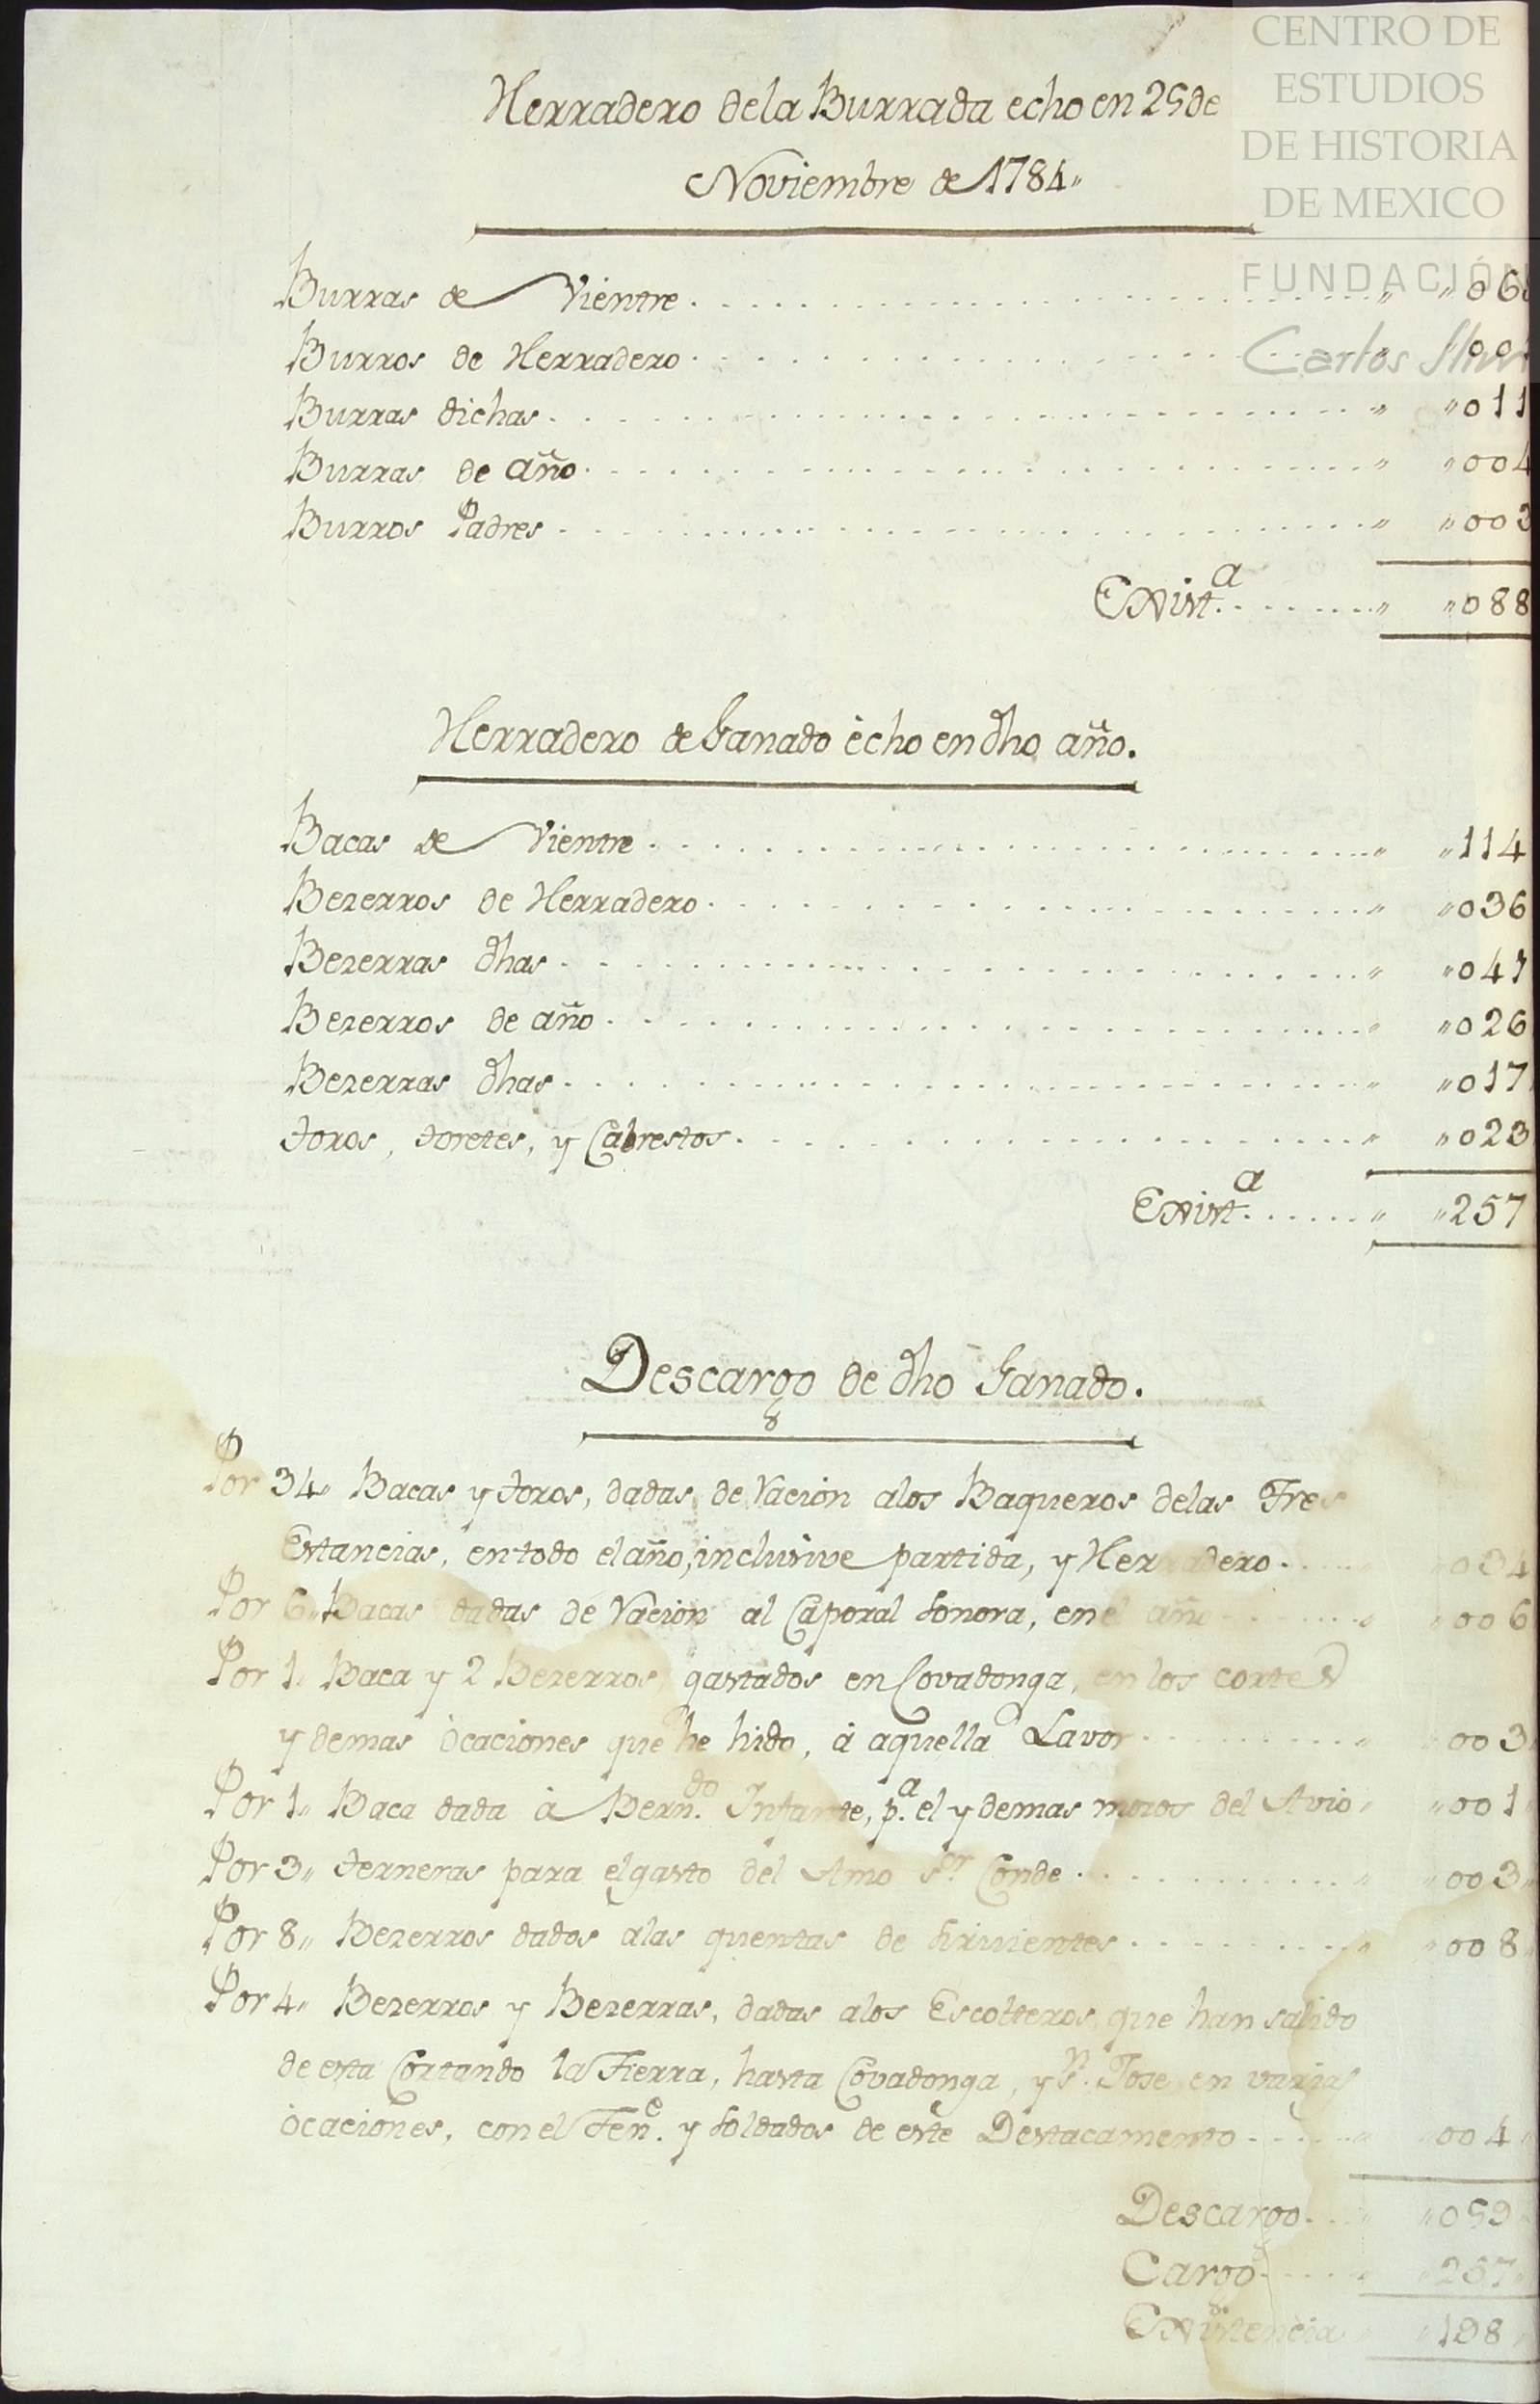 CENTRO DE
ESTUDIOS
DE HISTORIA
DE MEXICO
FUNDACIÓN
Carlos Slim
Herradero dela Burrada echo en 25 de
Noviembre de 1784"
Burras de Vientre . . . . " "06
Burros de Herradero . . . . " "00
Burras dichas . . . . " "011
Burras de año . . . . " "004
Burros Padres . . . . " "003
Exist.ª . . . . " "088
Herradero de Ganado écho en dho año.
Bacas de Vientre . . . . " "114
Bezerros de Herradero . . . . " "036
Bezerras dhas . . . . " "041
Bezerros de año . . . . " "026
Bezerras dhas . . . . " "017
toros, toretes, y Cabrestos . . . . " "023
Exist.ª . . . . " "257
Descargo de dho Ganado.
Por 34" Bacas y toros, dadas de Racion alos Baqueros delas Tres
Estancias, en todo el año, inclusive partida, y Herradero . . . . "034
Por 6" Bacas dadas de Racion al Caporal Sonora, en el año . . . . " "006
Por 1" Baca y 2 Bezerros, gastados en Covadonga, en los cortes
y demas òcaciones que he hido, à aquella Lavor . . . . " "003"
Por 1" Baca dada à Bern.do Infante, p.ª el y demas mozos del Avio " "001"
Por 3" terneras para el gasto del Amo S.or Conde . . . . " "003"
Por 8" Bezerros dados alas quentas de Sirvientes . . . . " "008"
Por 4" Bezerros y Bezerras, dadas alos Escolteros, que han salido
de esta Cortando la Tierra, hasta Covadonga, y S.n Jose, en varias
òcaciones, con el Ten.e y Soldados de este Destacamento . . . . " "004"
Descargo . . . " "059"
Cargo . . . . " "257"
Existencia " "198"